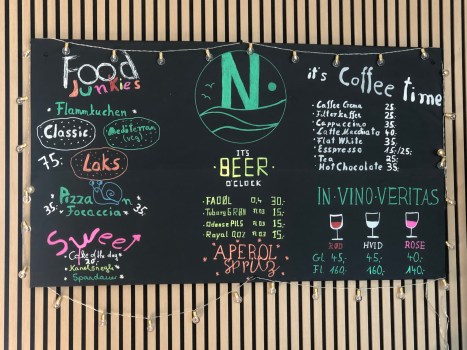 Food
Junkies
Flammkuchen
Classic
Mediterran
(veg)
75:
Laks
Pizza
35:
Focaccia
35:
Sweet
Cake of the day
20,-
Kanelsnegle
Spandauer
N
IT'S
BEER
O'CLOCK
FADØL 0,4 30:-
Tuborg GRØN 15:-
Odense PILS 15:-
Royal 15:-
APEROL
Spritz
it's Coffee time
Caffee Crema 25:
Filterkaffee 25:
Cappuccino 35:
Latte Macchiato 40:
Flat White 35:
Esspresso 15:/25:
Tea 25:
Hot Chocolate 35:
IN·VINO·VERITAS
RØD HVID ROSE
GL 45:- 45:- 40:-
Fl 160:- 160:- 140:-